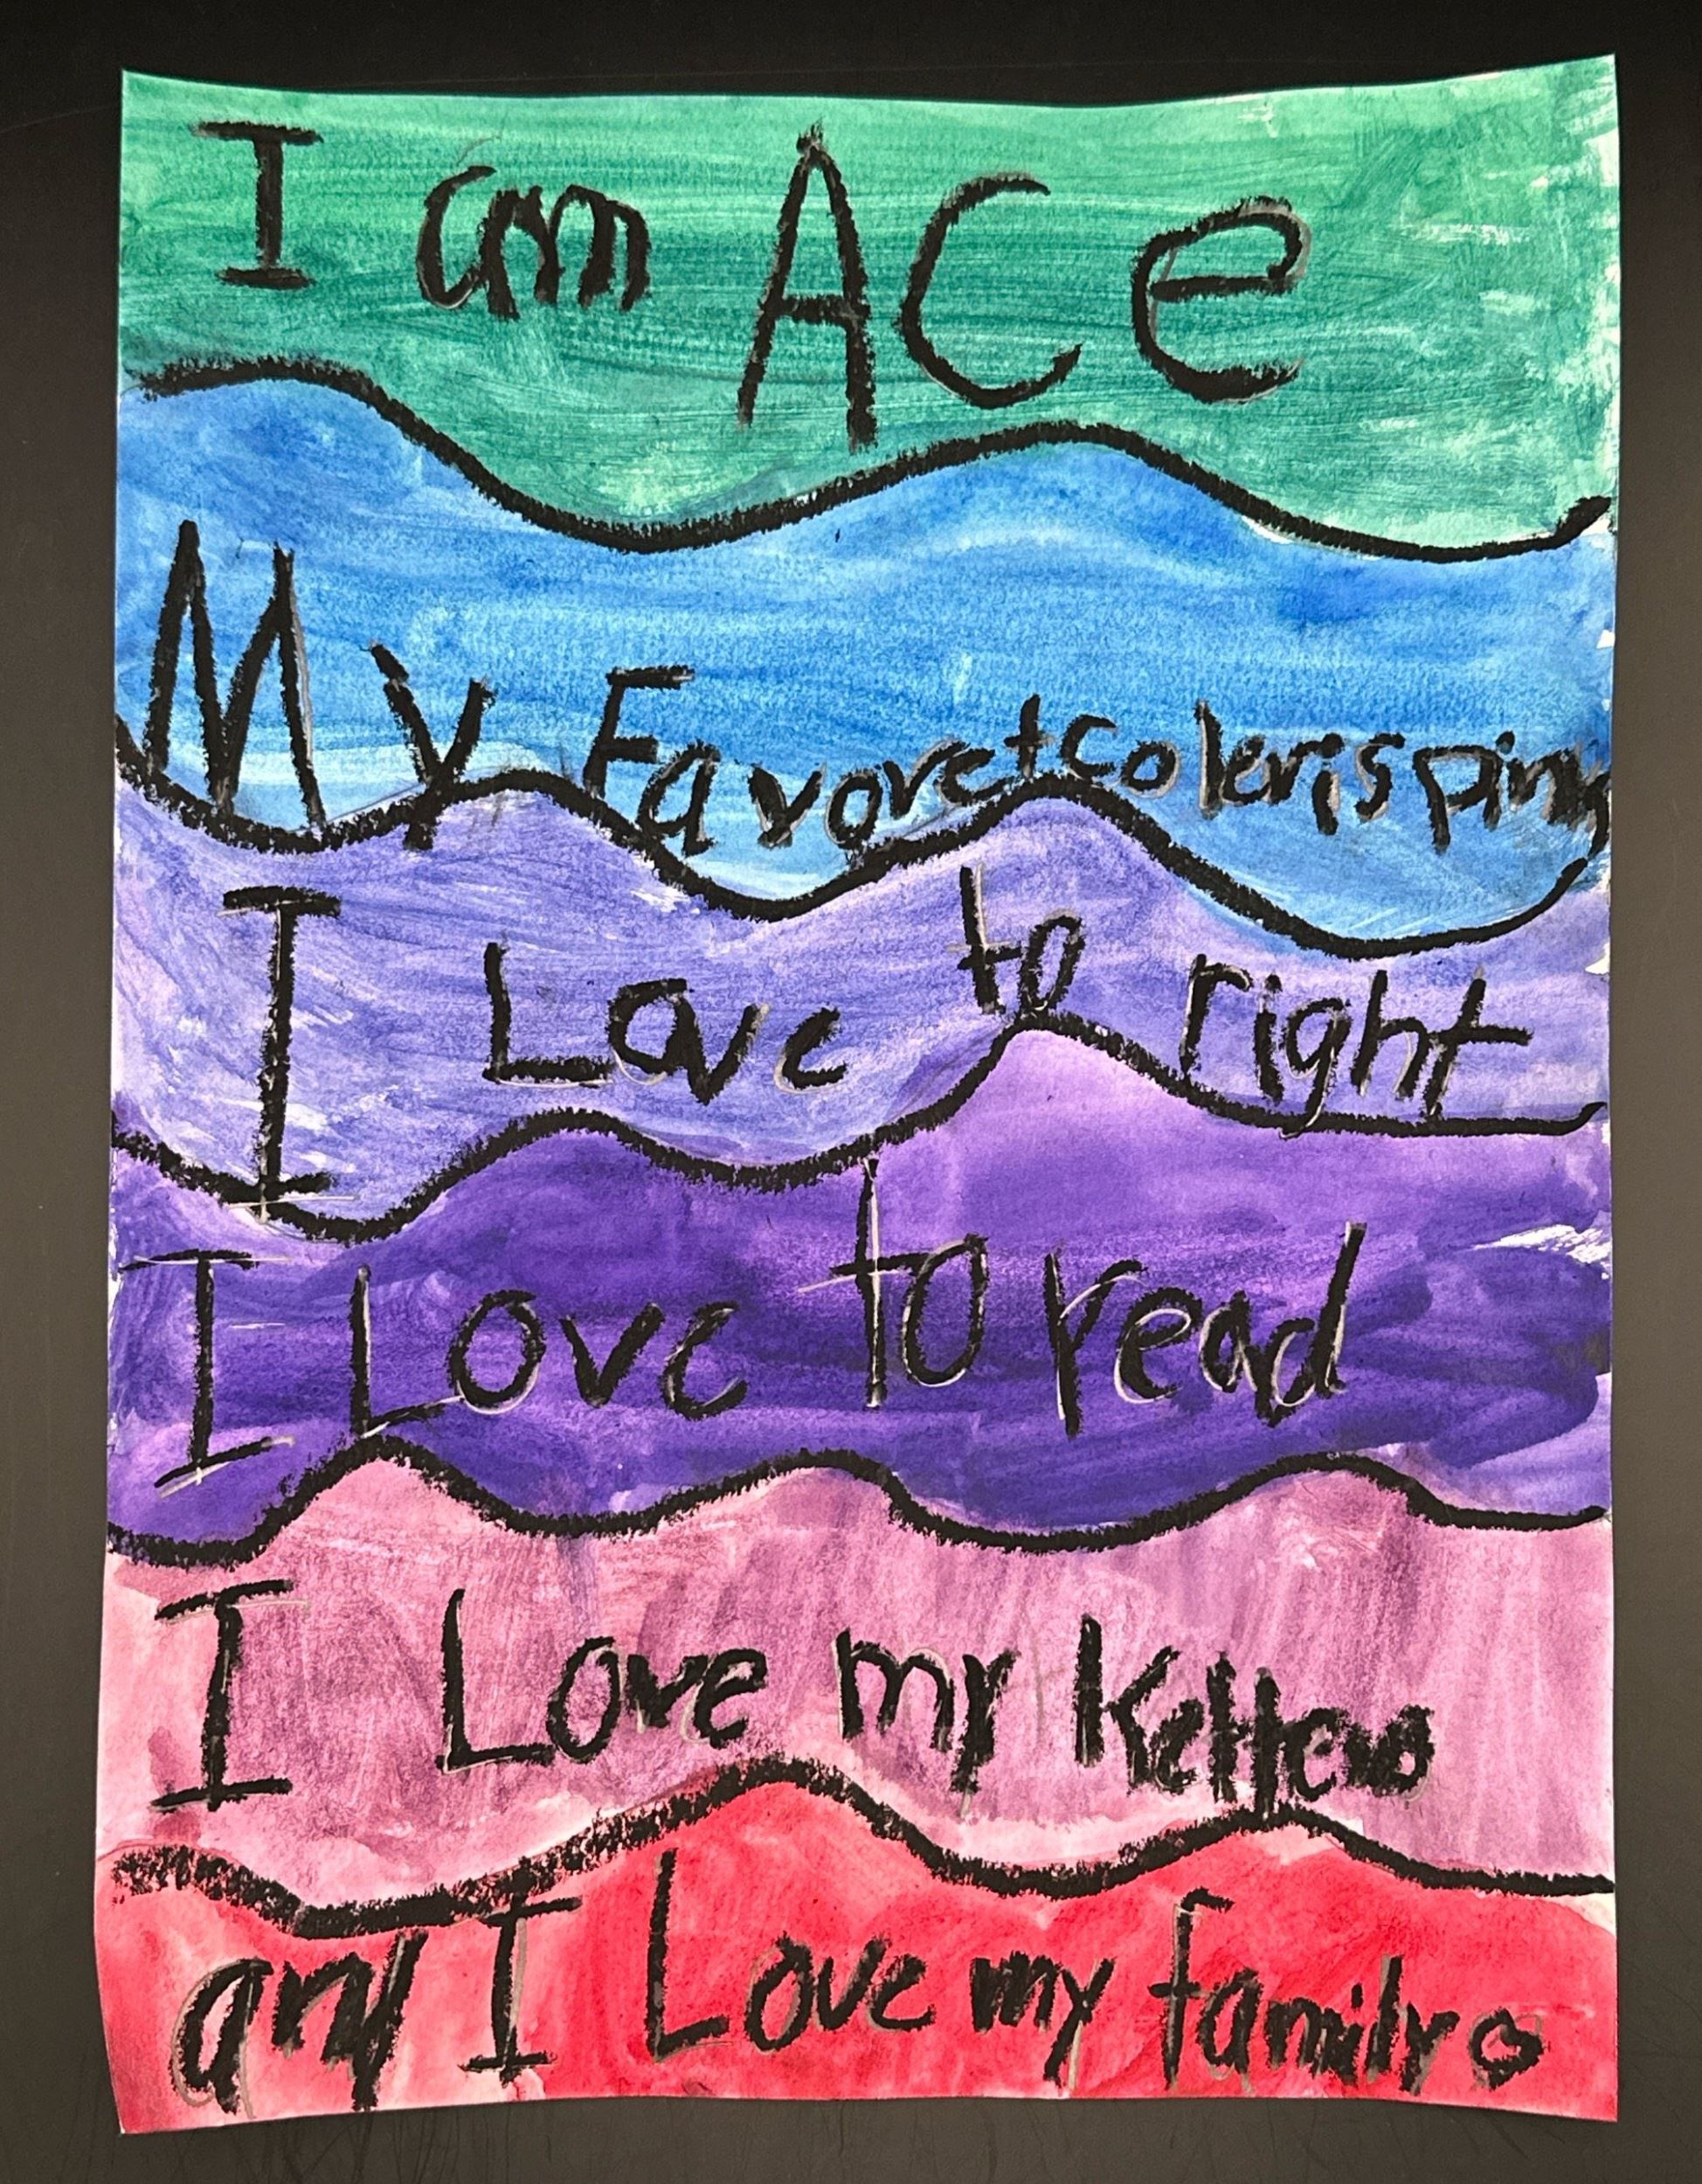 I am ACe
My Favoret coler is pink
I Love to right
I Love to read
I Love my Kettews
and I Love my family